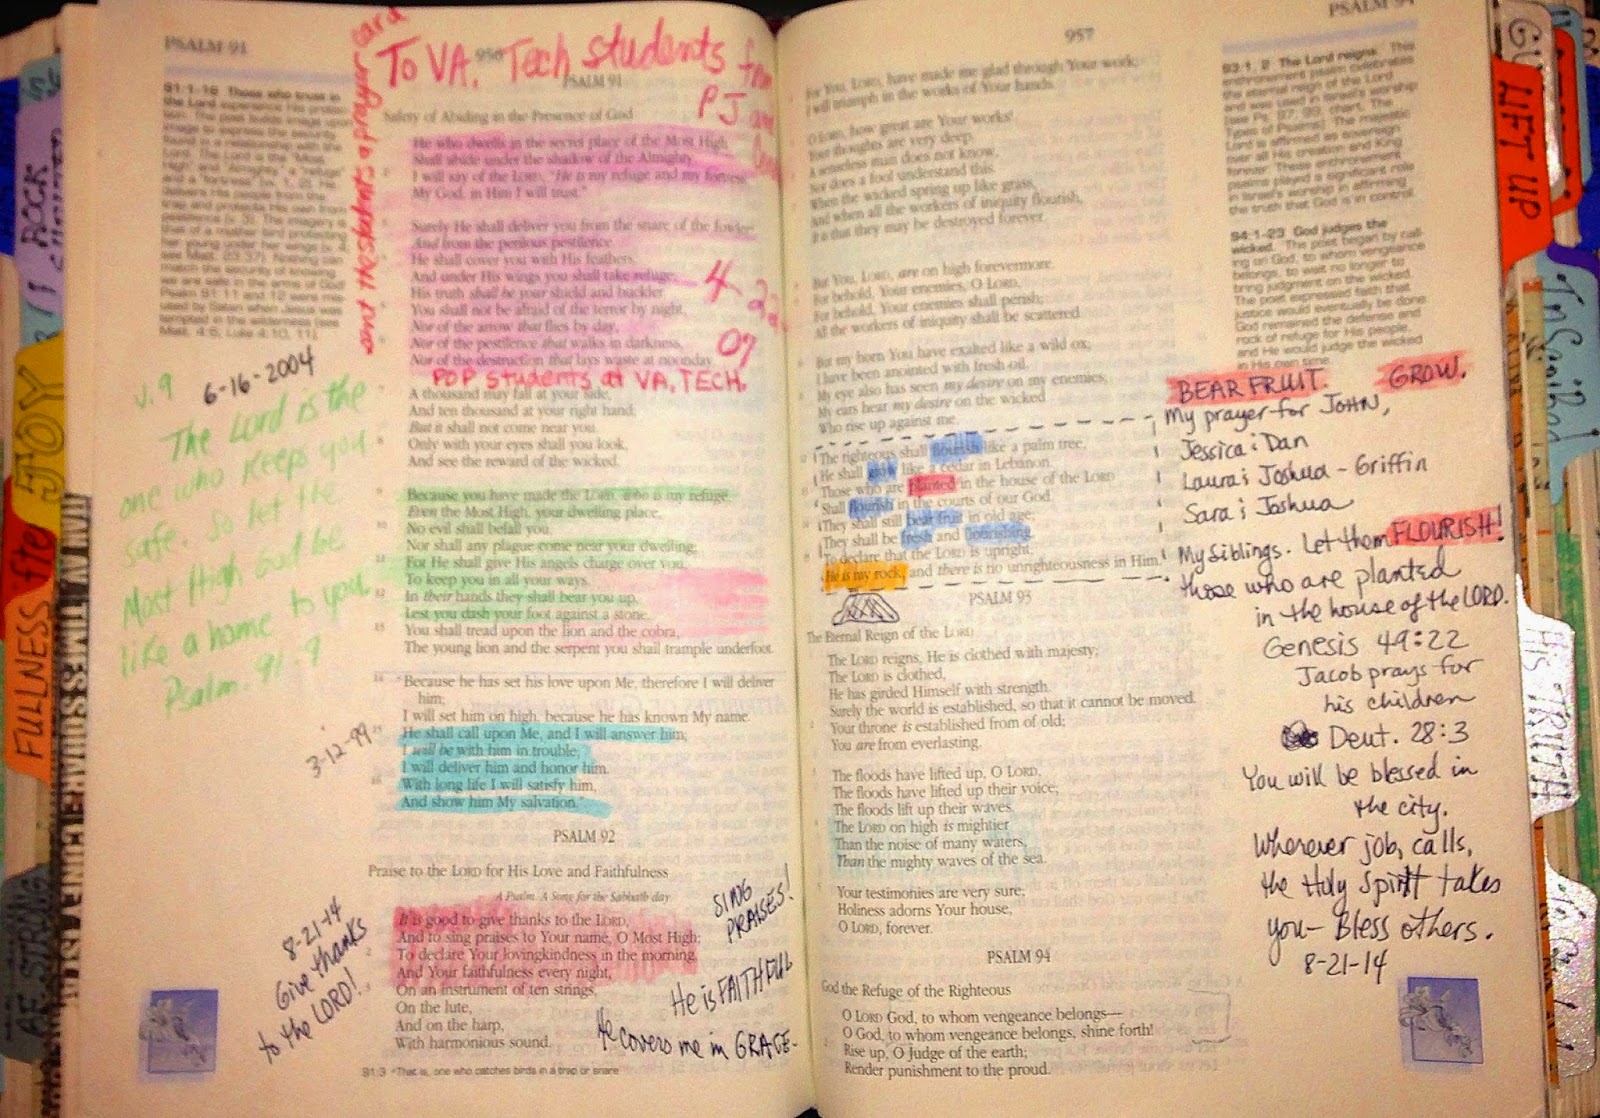 PSALM 91
956
To VA. Tech students
PJ
and the students' prayer card
PSALM 91
91:1-16 Those who trust in
the Lord experience His protec-
Safety of Abiding in the Presence of God
He who dwells in the secret place of the Most High
Shall abide under the shadow of the Almighty.
I will say of the LORD, "He is my refuge and my fortress;
My God, in Him I will trust."
Surely He shall deliver you from the snare of the fowler
And from the perilous pestilence.
He shall cover you with His feathers,
And under His wings you shall take refuge;
His truth shall be your shield and buckler.
You shall not be afraid of the terror by night,
Nor of the arrow that flies by day,
Nor of the pestilence that walks in darkness,
Nor of the destruction that lays waste at noonday.
4-22
07
FOR students at VA. TECH.
A thousand may fall at your side,
And ten thousand at your right hand;
But it shall not come near you.
Only with your eyes shall you look,
And see the reward of the wicked.
Because you have made the LORD, who is my refuge,
Even the Most High, your dwelling place,
No evil shall befall you,
Nor shall any plague come near your dwelling;
For He shall give His angels charge over you,
To keep you in all your ways.
In their hands they shall bear you up,
Lest you dash your foot against a stone.
You shall tread upon the lion and the cobra,
The young lion and the serpent you shall trample underfoot.
"Because he has set his love upon Me, therefore I will deliver
him;
I will set him on high, because he has known My name.
He shall call upon Me, and I will answer him;
I will be with him in trouble;
I will deliver him and honor him.
With long life I will satisfy him,
And show him My salvation."
v. 9
6-16-2004
The Lord is the
one who keeps you
safe. So let the
Most High God be
like a home to you.
Psalm. 91.9
3-12-99
PSALM 92
Praise to the LORD for His Love and Faithfulness
A Psalm. A Song for the Sabbath day.
It is good to give thanks to the LORD,
And to sing praises to Your name, O Most High;
To declare Your lovingkindness in the morning,
And Your faithfulness every night,
On an instrument of ten strings,
On the lute,
And on the harp,
With harmonious sound.
8-21-14
Give thanks
to the LORD!
SING
PRAISES!
He is FAITHFUL
He covers me in GRACE.
91:3 That is, one who catches birds in a trap or snare
957
PSALM 94
For You, LORD, have made me glad through Your work;
I will triumph in the works of Your hands.
O LORD, how great are Your works!
Your thoughts are very deep.
A senseless man does not know,
Nor does a fool understand this.
When the wicked spring up like grass,
And when all the workers of iniquity flourish,
It is that they may be destroyed forever.
But You, LORD, are on high forevermore.
For behold, Your enemies, O LORD,
For behold, Your enemies shall perish;
All the workers of iniquity shall be scattered.
But my horn You have exalted like a wild ox;
I have been anointed with fresh oil.
My eye also has seen my desire on my enemies;
My ears hear my desire on the wicked
Who rise up against me.
The righteous shall flourish like a palm tree,
He shall grow like a cedar in Lebanon.
Those who are planted in the house of the LORD
Shall flourish in the courts of our God.
They shall still bear fruit in old age;
They shall be fresh and flourishing,
To declare that the LORD is upright;
He is my rock, and there is no unrighteousness in Him.
PSALM 93
The Eternal Reign of the LORD
The LORD reigns, He is clothed with majesty;
The LORD is clothed,
He has girded Himself with strength.
Surely the world is established, so that it cannot be moved.
Your throne is established from of old;
You are from everlasting.
The floods have lifted up, O LORD,
The floods have lifted up their voice;
The floods lift up their waves.
The LORD on high is mightier
Than the noise of many waters,
Than the mighty waves of the sea.
Your testimonies are very sure;
Holiness adorns Your house,
O LORD, forever.
PSALM 94
God the Refuge of the Righteous
O LORD God, to whom vengeance belongs—
O God, to whom vengeance belongs, shine forth!
Rise up, O Judge of the earth;
Render punishment to the proud.
93:1, 2 The Lord reigns. This
enthronement psalm celebrates
the eternal reign of the Lord
and was used in Israel's worship
94:1-23 God judges the
wicked. The poet began by call-
ing on God, to whom vengeance
belongs, to wait no longer to
bring judgment on the wicked.
The poet expressed faith that
justice would eventually be done.
God remained the defense and
rock of refuge for His people,
and He would judge the wicked
in His own time.
BEAR FRUIT. GROW.
My prayer for JOHN,
Jessica & Dan
Laura & Joshua - Griffin
Sara & Joshua
My siblings. Let them FLOURISH!
those who are planted
in the house of the LORD.
Genesis 49:22
Jacob prays for
his children
Deut. 28:3
You will be blessed in
the city.
Wherever job, calls,
the Holy Spirit takes
you - Bless others.
8-21-14
ROCK
JOY
FULLNESS
BE STRONG
LIFT UP
HIS TRUTH